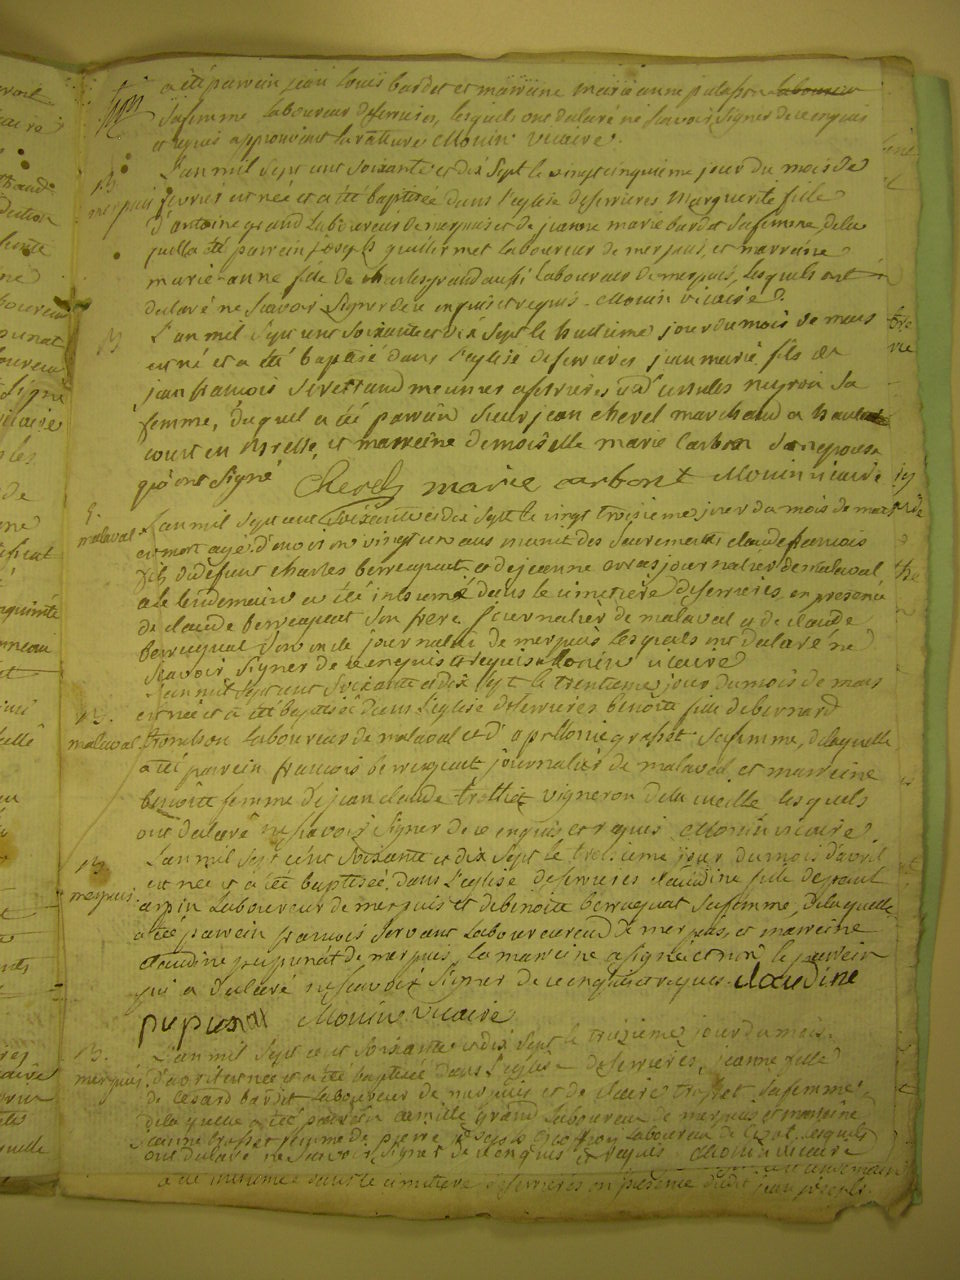 a été parrain jean louis bardet et marraine marie anne
sa femme laboureur de serrieres, lesquels ont déclaré ne scavoir signer de ce enquis
et requis approuvant la rature Monin vicaire.
B
merpuis
L'an mil sept cent soixante et dix sept le vingt cinquieme jour du mois de
fevrier est née et a été baptisée dans l'eglise de serrieres Marguerite fille
d'antoine grand laboureur de merpuis et de jeanne marie bardet sa femme, de la
quelle a été parrein joseph guillermet laboureur de merpuis, et marreine
marie-anne fille de charles grand aussi laboureur de merpuis, lesquels ont
declaré ne scavoir signer de ce enquis et requis. Monin vicaire.
B
L'an mil sept cent soixante et dix sept le huitieme jour du mois de mars
est né et a été baptisé dans l'eglise de serrieres jean marie fils de
jean francois sevettrand meunier a serrieres et d' ursules neyron sa
femme, duquel a été parrain sieur jean chevel marchand a haute
court en bresse, et marreine demoiselle marie Carbon son epouse
qui ont signé Chevel marie carbont Monin vicaire
S.
malaval
L'an mil sept cent soixante et dix sept le vingt troisieme jour du mois de mars
est mort agé d'environ vingt un ans munit des sacremens claude francois
fils du defunt charles berruquat et de jeanne journalier de malaval,
et le lendemain a été inhumé dans le cimetiere de serrieres en presence
de claude berruquat son frere journalier de malaval et de claude
berruquat son oncle journalier de merpuis lesquels ont declaré ne
scavoir signer de ce enquis et requis Monin vicaire
B.
malaval
L'an mil sept cent soixante et dix sept le trentieme jour du mois de mars
est née et a été baptisée dans l'eglise de serrieres benoite fille de bernard
laboureur de malaval et d'apollonie grosset sa femme, de laquelle
a été parrein francois berruquat journalier de malaval, et marreine
benoite femme de jean claude trolliet vigneron de la lesquels
ont declaré ne scavoir signer de ce enquis et requis Monin vicaire.
B.
merpuis
L'an mil sept cent soixante et dix sept le troisieme jour du mois d'avril
est née et a été baptisée dans l'eglise de serrieres claudine fille de
arpin laboureur de merpuis et de benoite berruquat sa femme, de laquelle
a été parrein francois servant laboureur de merpuis, et marreine
claudine pupunat de merpuis, la marreine a signé et non le parrein
qui a declaré ne scavoir signer de ce enquis et requis. claudine
pupunat Monin vicaire
B.
merpuis
L'an mil sept cent soixante et dix sept le treizieme jour du mois
d'avril est née et a été baptisée dans l'eglise de serrieres, jeanne fille
de Cesard bardet laboureur de merpuis et de claire trosset sa femme
de laquelle a été parrein camille grand laboureur de merpuis et marreine
jeanne trosset femme de pierre laboureur de lesquels
ont declaré ne scavoir signer de ce enquis et requis Monin vicaire
a été inhumée dans le cimetiere de serrieres en presence dudit jean joseph